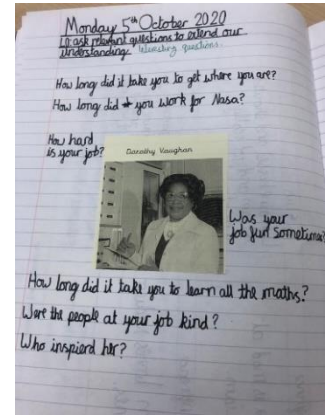 Monday 5th October 2020
to ask relevant questions to extend our
understanding. Interesting questions.
How long did it take you to get where you are?
How long did you work for Nasa?
How hard
is your job?
Dorothy Vaughan
Was your
job fun sometimes?
How long did it take you to learn all the maths?
Were the people at your job kind?
Who inspierd her?